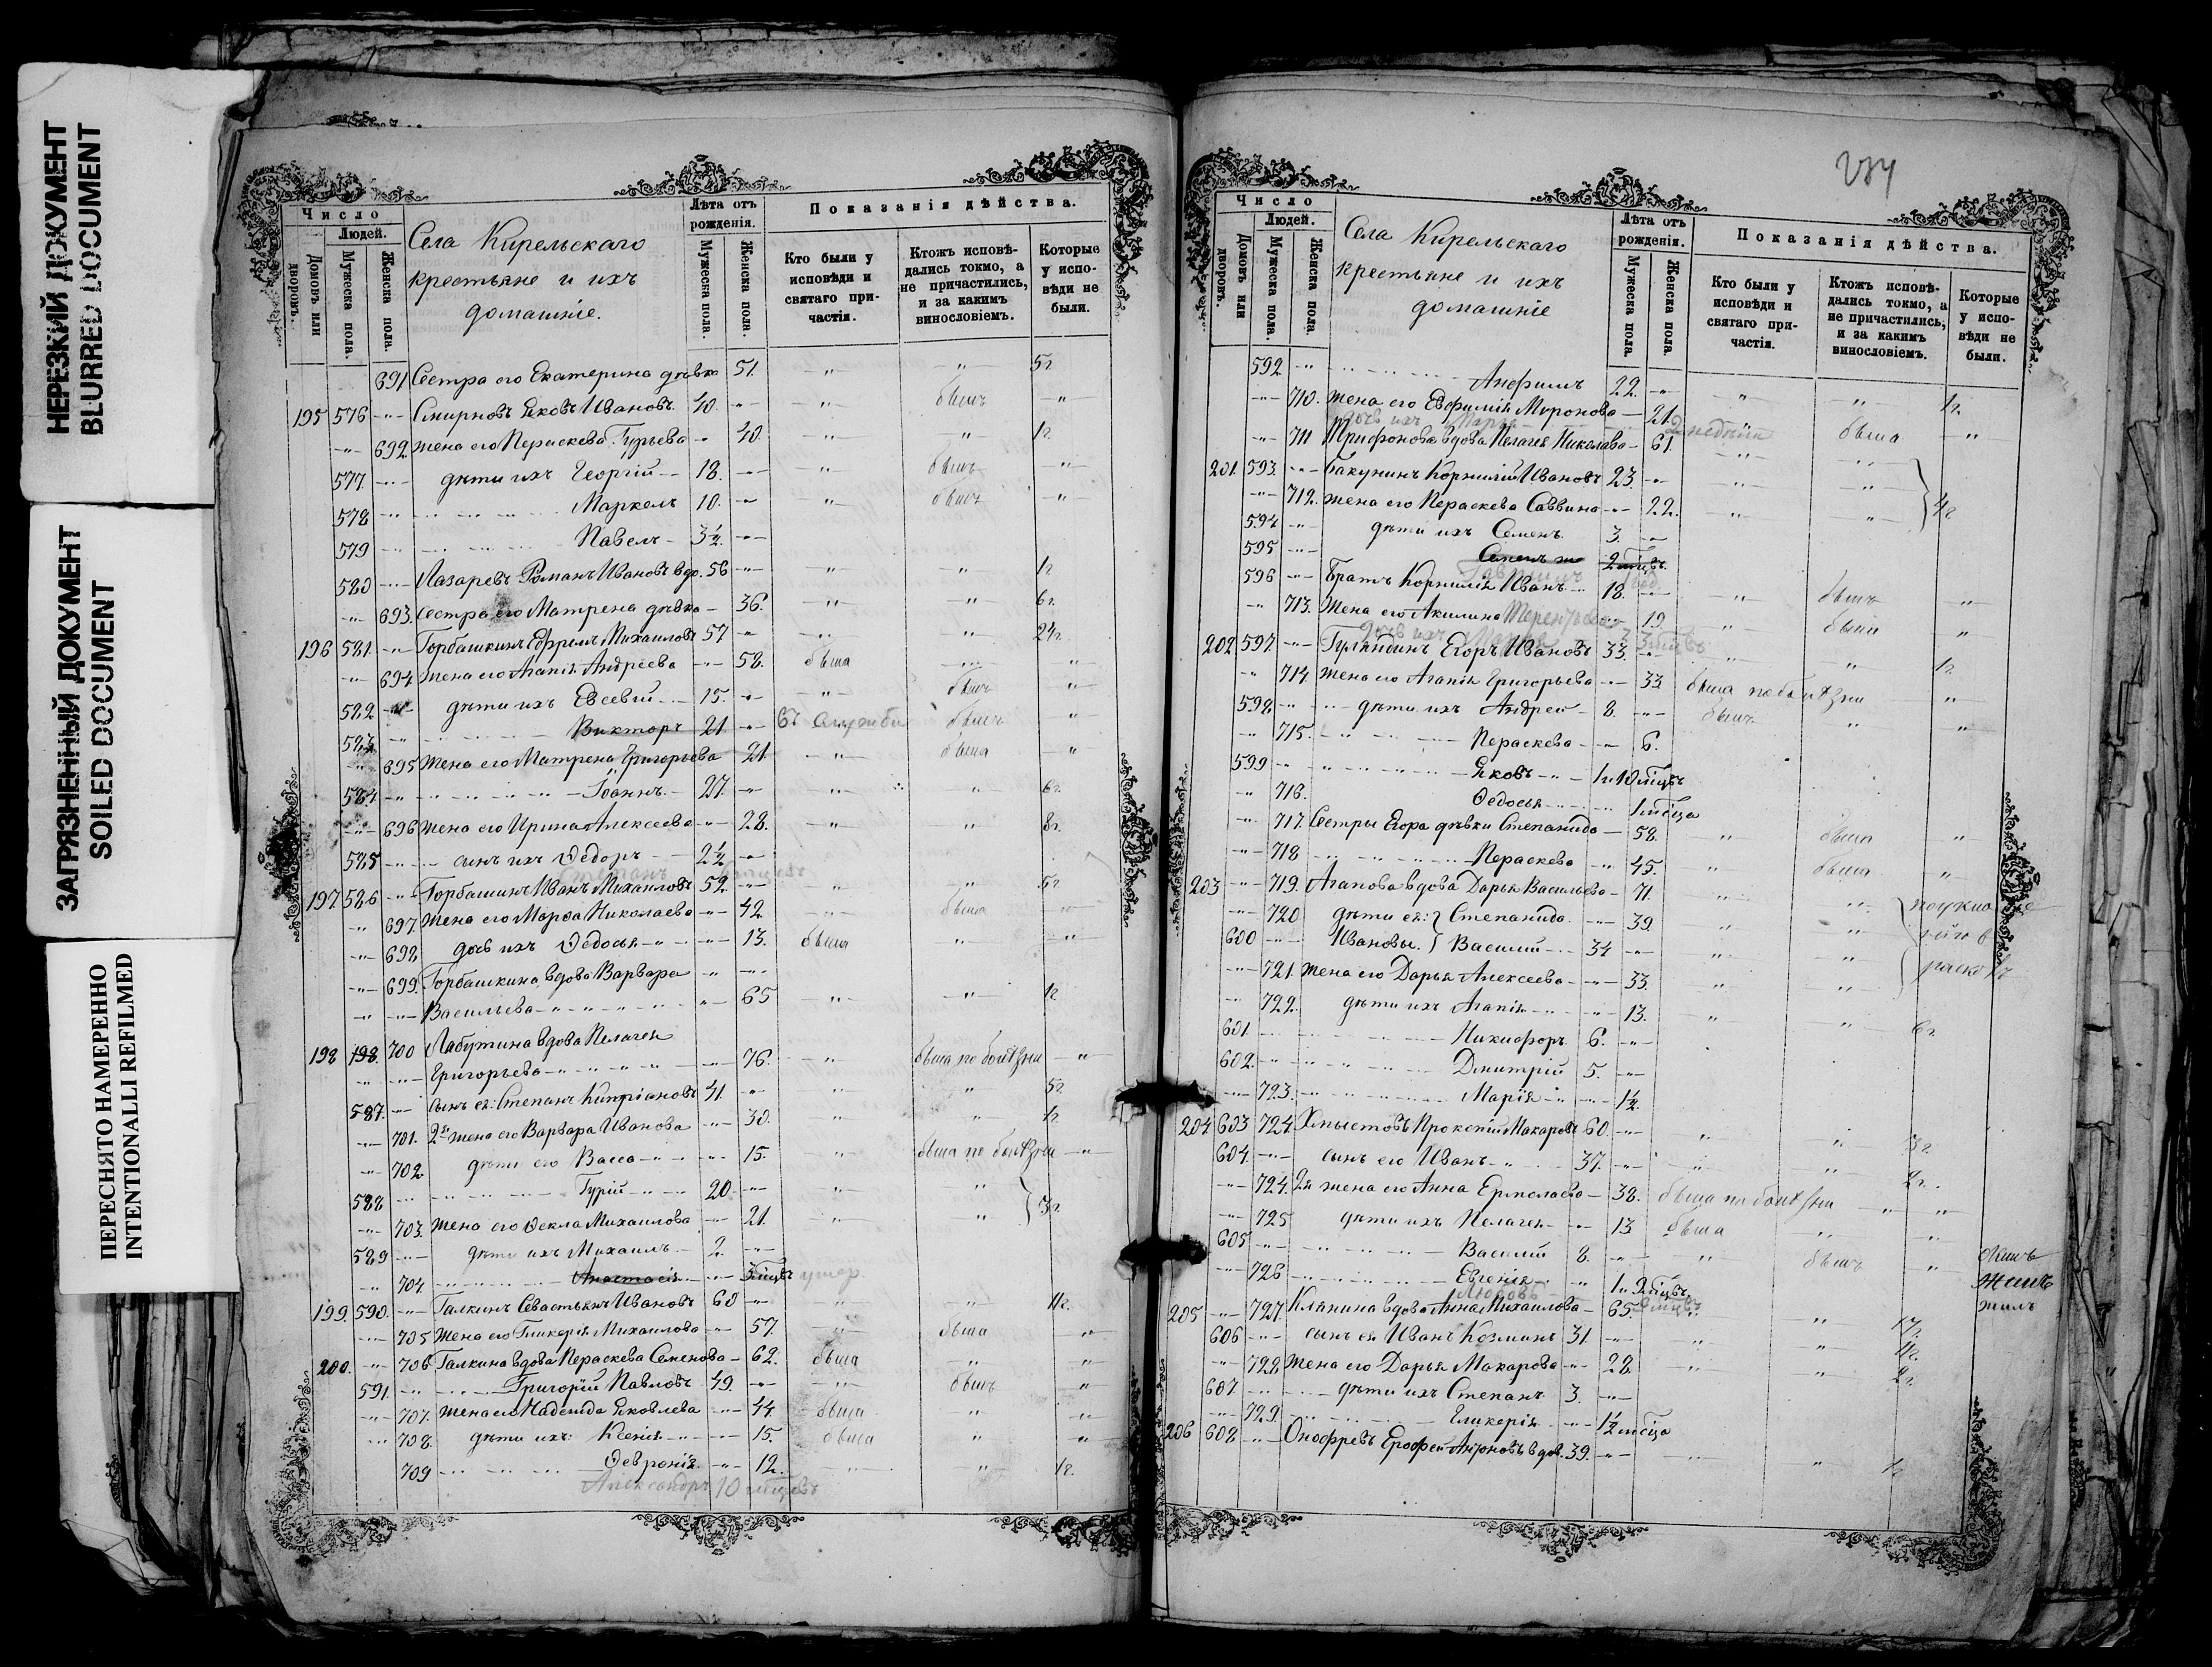 НЕРЕЗКИЙ ДОКУМЕНТ
BLURRED DOCUMENT
ЗАГРЯЗНЕННЫЙ ДОКУМЕНТ
SOILED DOCUMENT
ПЕРЕСНЯТО НАМЕРЕННО
INTENTIONALLI REFILMED
Число
Людей.
Домовъ или дворовъ.
Мужеска пола.
Женска пола.
Села Кирельскаго
крестьяне и ихъ
домашніе.
Лѣта отъ рожденія.
Мужеска пола.
Женска пола.
Показанія дѣйства.
Кто были у исповѣди и святаго причастія.
Ктожъ исповѣдались токмо, а не причастились, и за какимъ винословіемъ.
Которые у исповѣди не были.
691 Сестра его Екатерина дѣвка 51. 5г
195 576 Смирновъ Яковъ Ивановъ. 40. былъ
692 жена его Параскева Гурьева 40. 1г
577 дѣти ихъ Георгій 18. былъ
578 Маркелъ 10. былъ
579 Павелъ 3½
580 Лазаревъ Романъ Ивановъ вдо. 56 1г
693. Сестра его Матрена дѣвка 36. 6г
196 581. Горбашкинъ Ефремъ Михаиловъ 57 24г
694 жена его Агапія Андреева 58. была
582 дѣти ихъ Евсевій 15. былъ
583 Викторъ 21 въ службѣ былъ
695 жена его Матрена Григорьева 21 была
584 Іоаннъ 27. 6г
696 жена его Ирина Алексеева 28. 8г
585 сынъ ихъ Ѳедоръ 2½
197 586 Горбашинъ Иванъ Михаиловъ 52 5г
697 жена его Марѳа Николаева 42 была
698 дочь ихъ Ѳедосья 13. была
699. Горбашкина вдова Варвара
Васильева 65 1г
198 198. 700 Лабутина вдова Пелагея
Григорьева 76. была по болѣзни
587. сынъ ея: Степанъ Кипріановъ 41. 5г
701. 2я жена его Варвара Иванова 30. 1г
702 дѣти его Васса 15. была по болѣзни
588 Гурій 20
703. жена его Ѳекла Михаилова 21. 3г
589 дѣти ихъ Михаилъ 2.
704 Анастасія умер.
199. 590. Галкинъ Севастьянъ Ивановъ 60 11г.
705 жена его Гликерія Михаилова 57. была
200. 706 Галкина вдова Параскева Семенова 62. была
591. Григорій Павловъ 49. былъ
707. жена его Надежда Яковлева 44. была
708. дѣти ихъ: Ксенія 15. была
709 Ѳевронія 12. 1г.
Александръ 10 мѣцевъ
Число
Людей.
Домовъ или дворовъ.
Мужеска пола.
Женска пола.
Села Кирельскаго
крестьяне и ихъ
домашніе
Лѣта отъ рожденія.
Мужеска пола.
Женска пола.
Показанія дѣйства.
Кто были у исповѣди и святаго причастія.
Ктожъ исповѣдались токмо, а не причастились, и за какимъ винословіемъ.
Которые у исповѣди не были.
592 Анфимъ 22. 1г.
710. жена его Евфимія Миронова 21.
711 Трифонова вдова Пелагея Николаева 61. была
201. 593. Бакунинъ Корнилій Ивановъ 23.
712. жена его Параскева Саввина 22. 4г
594 дѣти ихъ Семенъ 3.
595
596 Братъ Корнилія Иванъ 18. былъ
713. жена его Акилина Терентьева 19. была
202 597. Гуляндинъ Егоръ Ивановъ 33. 1г
714 жена его Агапія Григорьева 33. была по болѣзни
598 дѣти ихъ Андрей 8. былъ
715. Параскева 6.
599 Яковъ 1 и 10 мѣцевъ
716. Ѳедосья 1 мѣсца
717. Сестры Егора дѣвки Степанида 58. была
718 Параскева 45. была
203 719. Агапова вдова Дарья Васильева 71.
720 дѣти ея: Степанида 39.
600 Ивановы. Василій 34
721. жена его Дарья Алексеева 33.
722. дѣти ихъ Агапія 13. 6г
601. Никифоръ 6.
602. Дмитрій 5.
723. Марія 1½
204 603 724 Хлыстовъ Прокопій Макаровъ 60. 3г
604. сынъ его Иванъ 37. 2г.
724. 2я жена его Анна Ермолаева 38. была по болѣзни
725 дѣти ихъ Пелагея 13 была
605 Василій 8. былъ
726 Евгенія 1 и 2 мѣцъ
Любовь
205 727. Кляпина вдова Анна Михаилова 65.
606 сынъ ея Иванъ Козминъ 31 11г.
728 жена его Дарья Макарова 28. 2г.
607. дѣти ихъ Степанъ 3.
729. Гликерія 1½ мѣсца
206 608 Онофревъ Ерофей вдов. 39. 1г